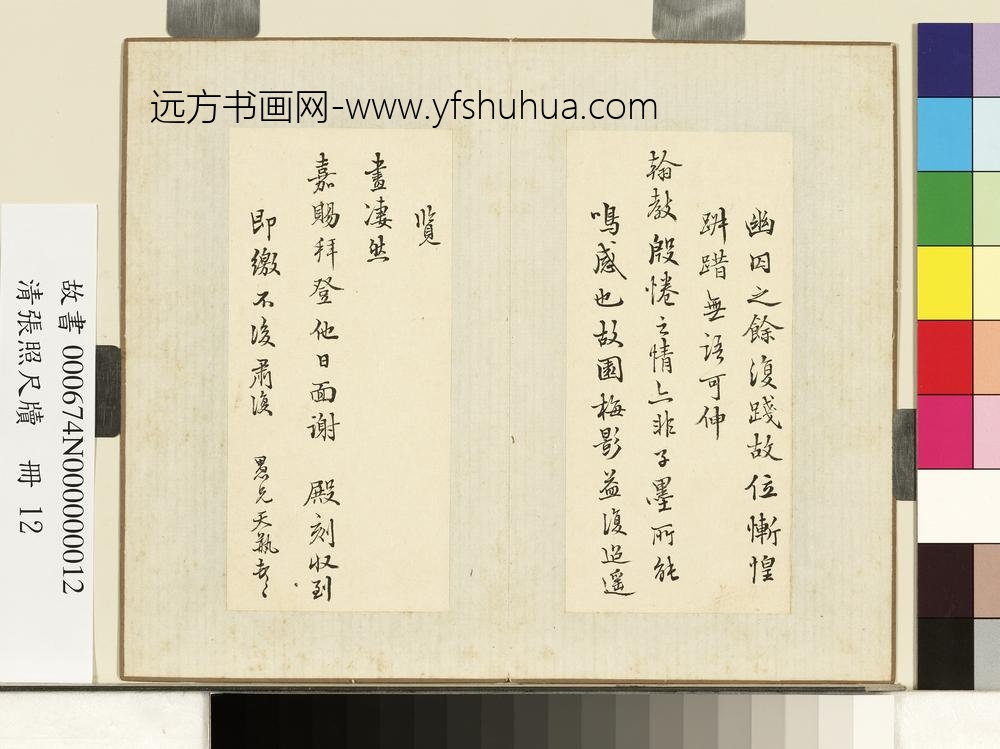 远方书画网-www.yfshuhua.com
幽囚之餘復踐故位慚惶
跰踖無語可伸
翰教殷惓之情亦非子墨所能
鳴感也故園梅影益復迢遥
覽
畫凄然
嘉賜拜登他日面謝 殿刻收到
即繳不浚肅浚 愚兄天瓶
故書 000674N000000012
清張照尺牘 冊 12